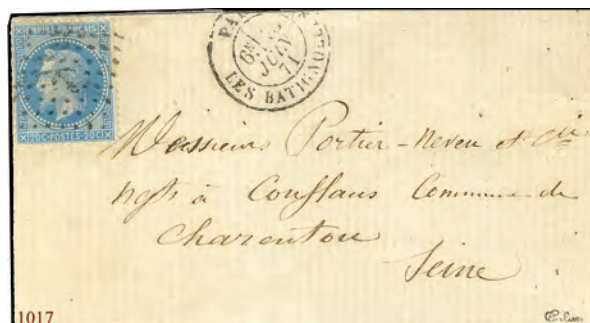 EMPIRE FRANÇAIS
20C·POSTES·20C
JUIN
71
LES BATIGNOLLES
Messieurs Portier-Neveu et Cie
ngts à Conflans Commune de
Charenton
Seine
1017